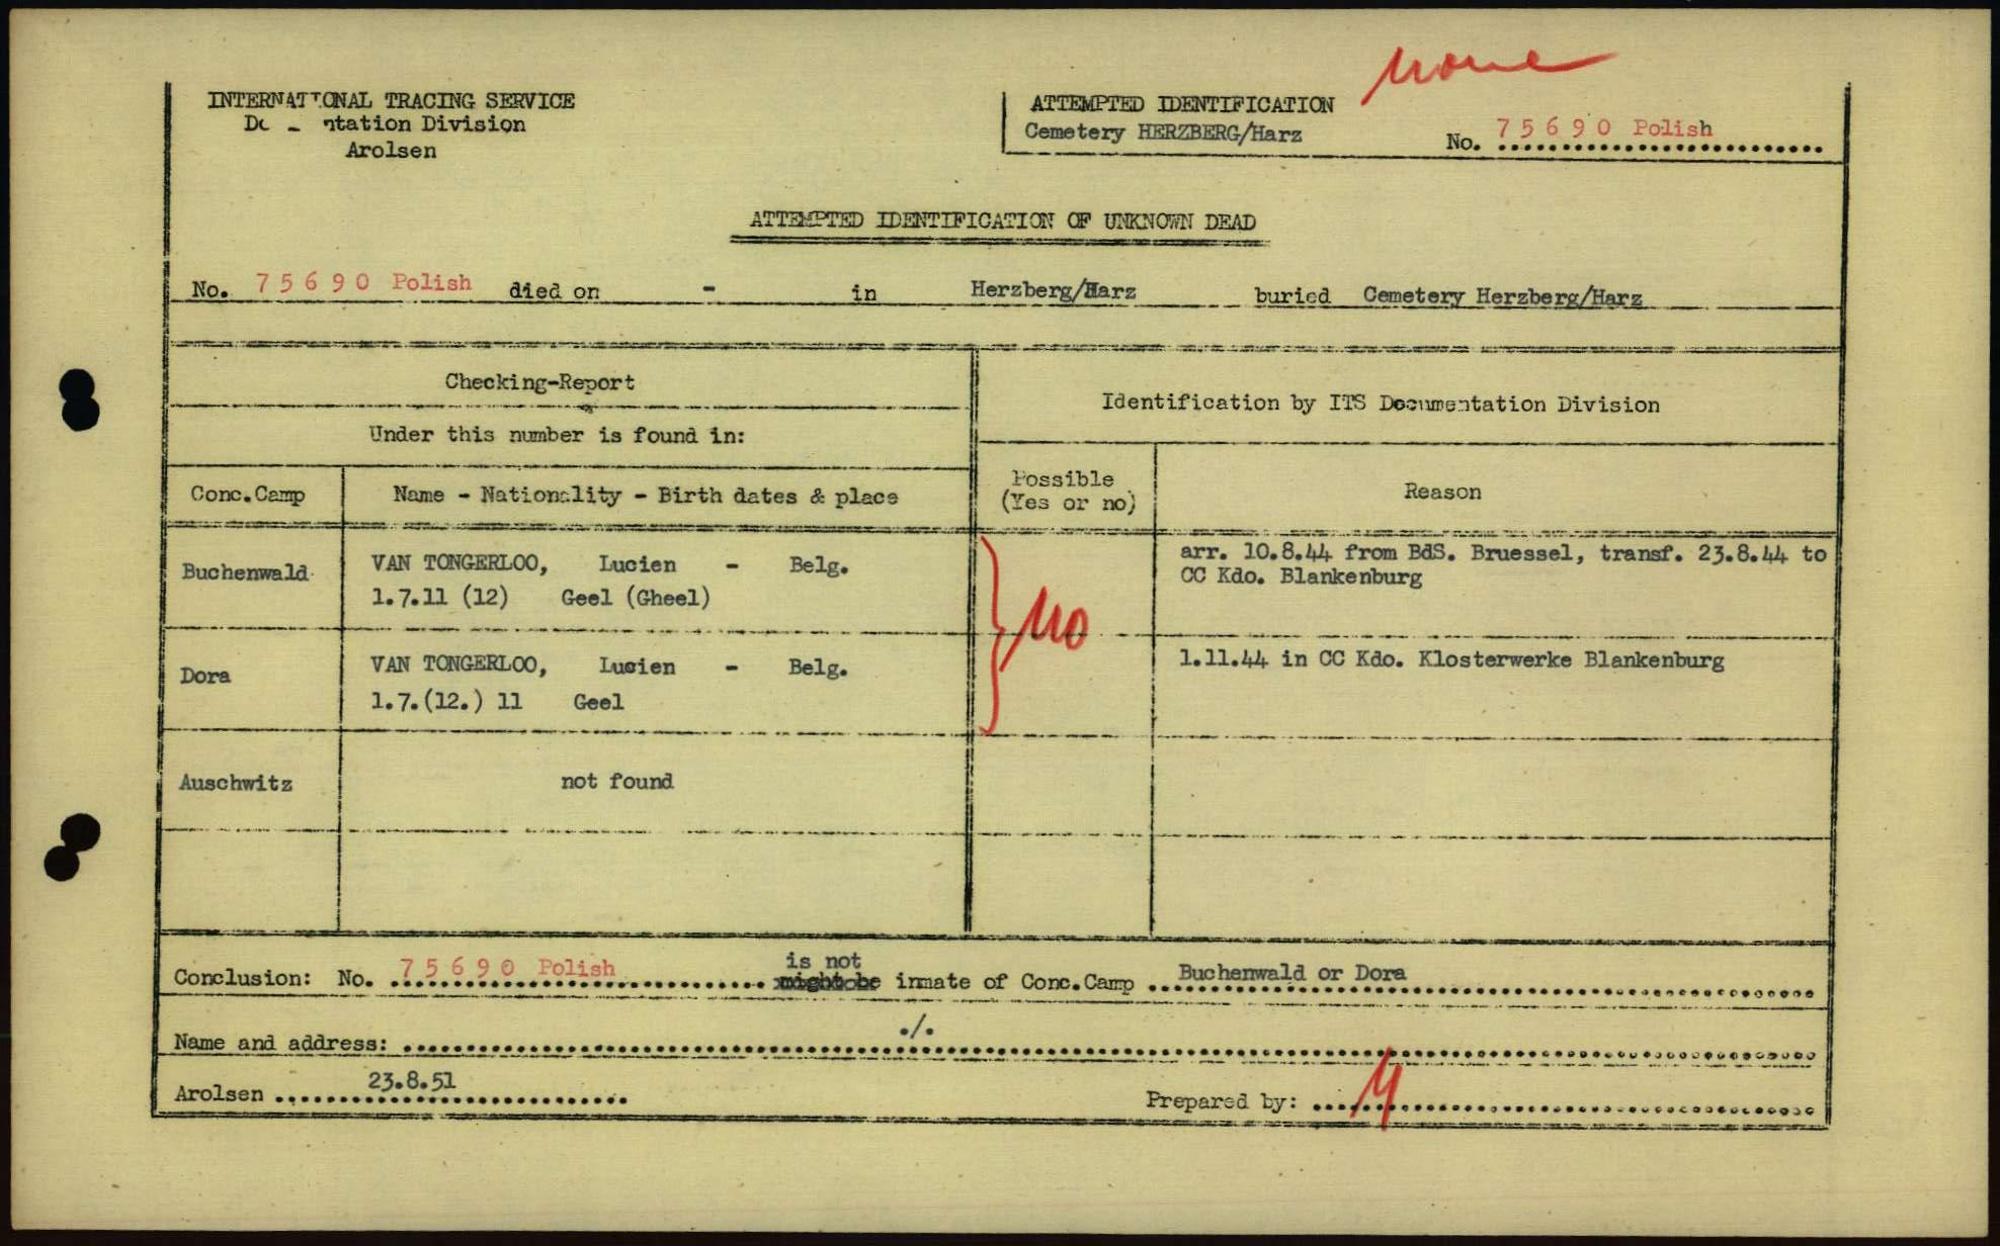 none
INTERNATIONAL TRACING SERVICE
Arolsen
ATTEMPTED IDENTIFICATION
Cemetery HERZBERG/Harz
No. 75690 Polish
ATTEMPTED IDENTIFICATION OF UNKNOWN DEAD
No. 75690 Polish died on - in Herzberg/Harz buried Cemetery Herzberg/Harz
Checking-Report
Under this number is found in:
Identification by ITS Documentation Division
Conc.Camp
Name - Nationality - Birth dates & place
Possible
(Yes or no)
Reason
Buchenwald
VAN TONGERLOO, Lucien - Belg.
1.7.11 (12) Geel (Gheel)
no
arr. 10.8.44 from BdS. Bruessel, transf. 23.8.44 to
CC Kdo. Blankenburg
Dora
VAN TONGERLOO, Lucien - Belg.
1.7.(12.) 11 Geel
1.11.44 in CC Kdo. Klosterwerke Blankenburg
Auschwitz
not found
is not
Conclusion: No. 75690 Polish might be inmate of Conc.Camp Buchenwald or Dora
Name and address: ./.
Arolsen 23.8.51
Prepared by: